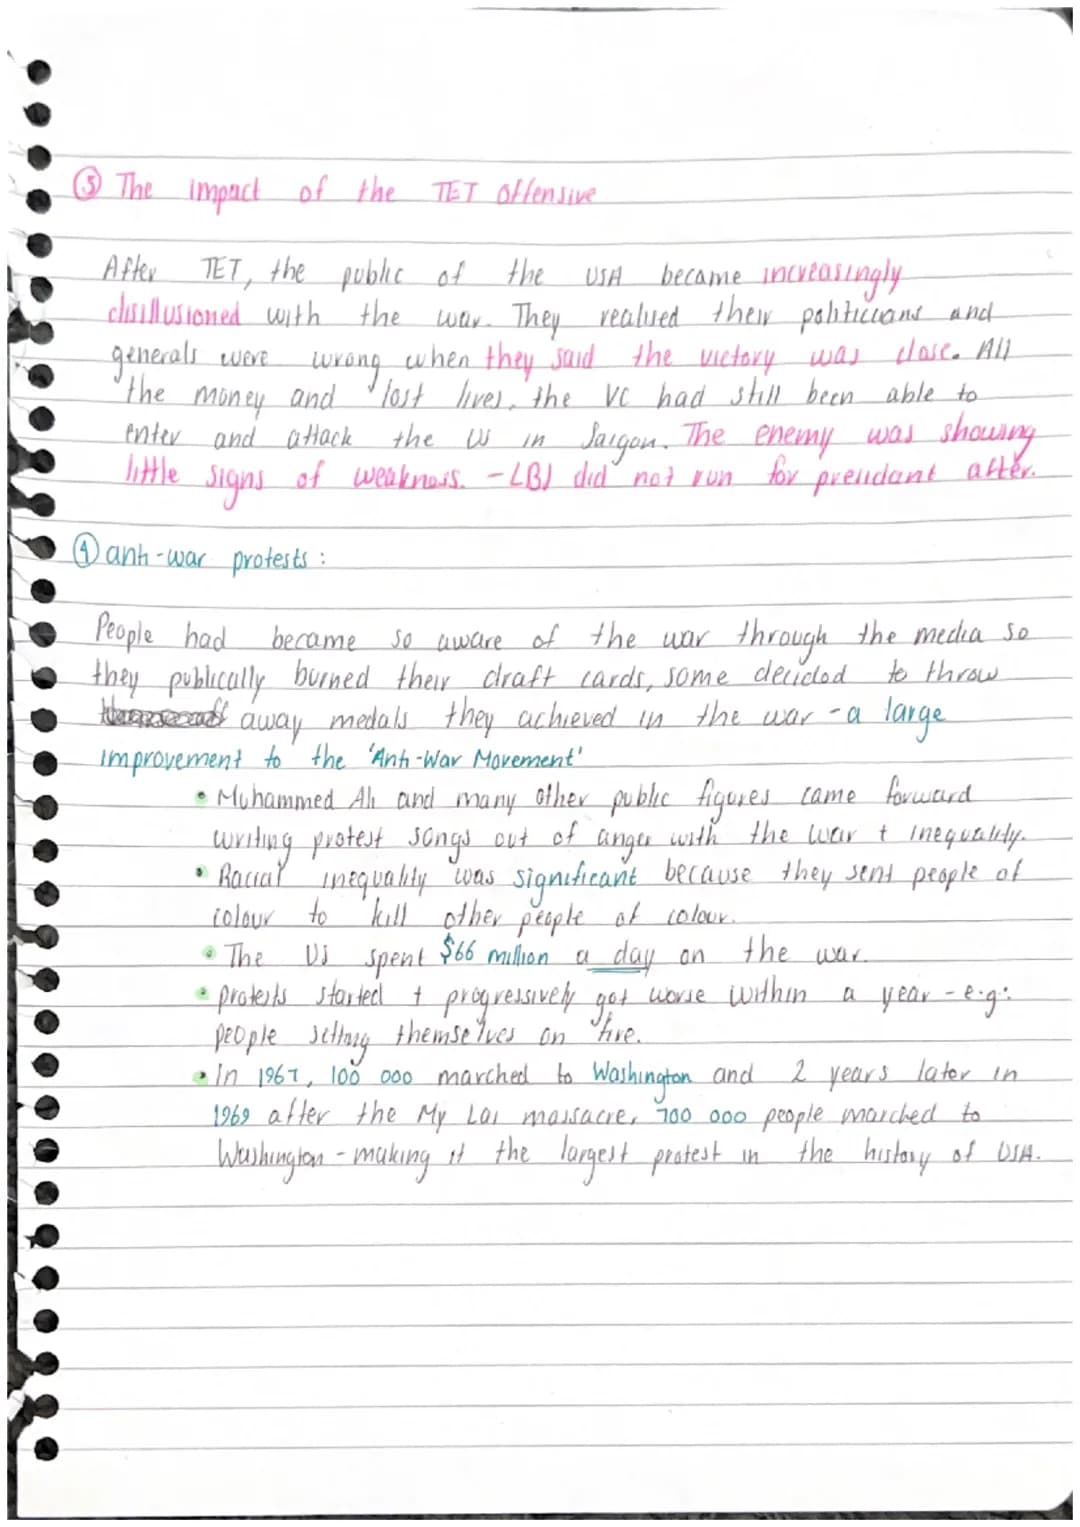 ③ The impact of the TET Offensive
After TET, the public of the USA became increasingly
disillusioned with the war. They realised their politicians and
generals were wrong when they said the victory was close. All
the money and lost lives, the VC had still been able to
enter and attack the US in Saigon. The enemy was showing
little signs of weakness. - LBJ did not run for presidant after.
④ anti-war protests :
People had became so aware of the war through the media so
they publically burned their draft cards, some decided to throw
away medals they achieved in the war - a large
improvement to the 'Anti-War Movement'
• Muhammed Ali and many other public figures came forward
writing protest songs out of anger with the war + inequality.
• Racial inequality was significant because they sent people of
colour to kill other people of colour.
• The US spent $66 million a day on the war.
• protests started + progressively got worse within a year - e.g:
people setting themselves on fire.
• In 1967, 100 000 marched to Washington and 2 years later in
1969 after the My Lai massacre, 700 000 people marched to
Washington - making it the largest protest in the history of USA.